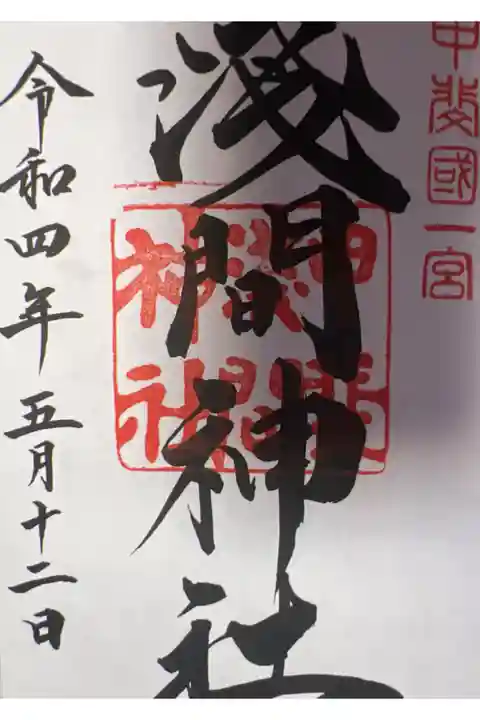 甲斐國一宮
淺間神社
令和四年五月十二日